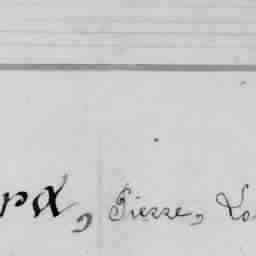 rd, Pierre, Lo